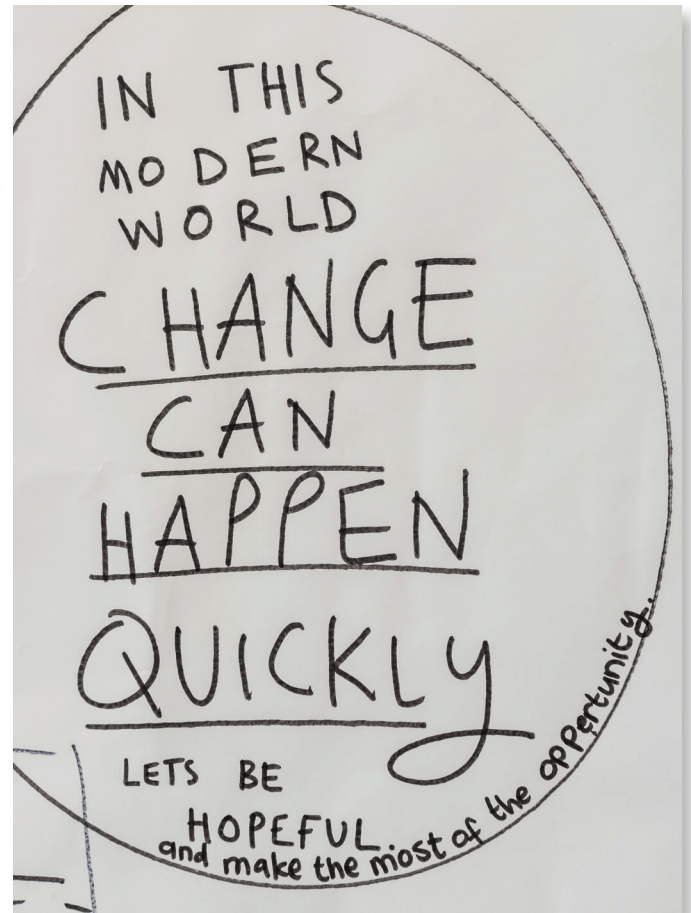 IN THIS
MODERN
WORLD
CHANGE
CAN
HAPPEN
QUICKLY
LETS BE
HOPEFUL
and make the most of the oppertunity..